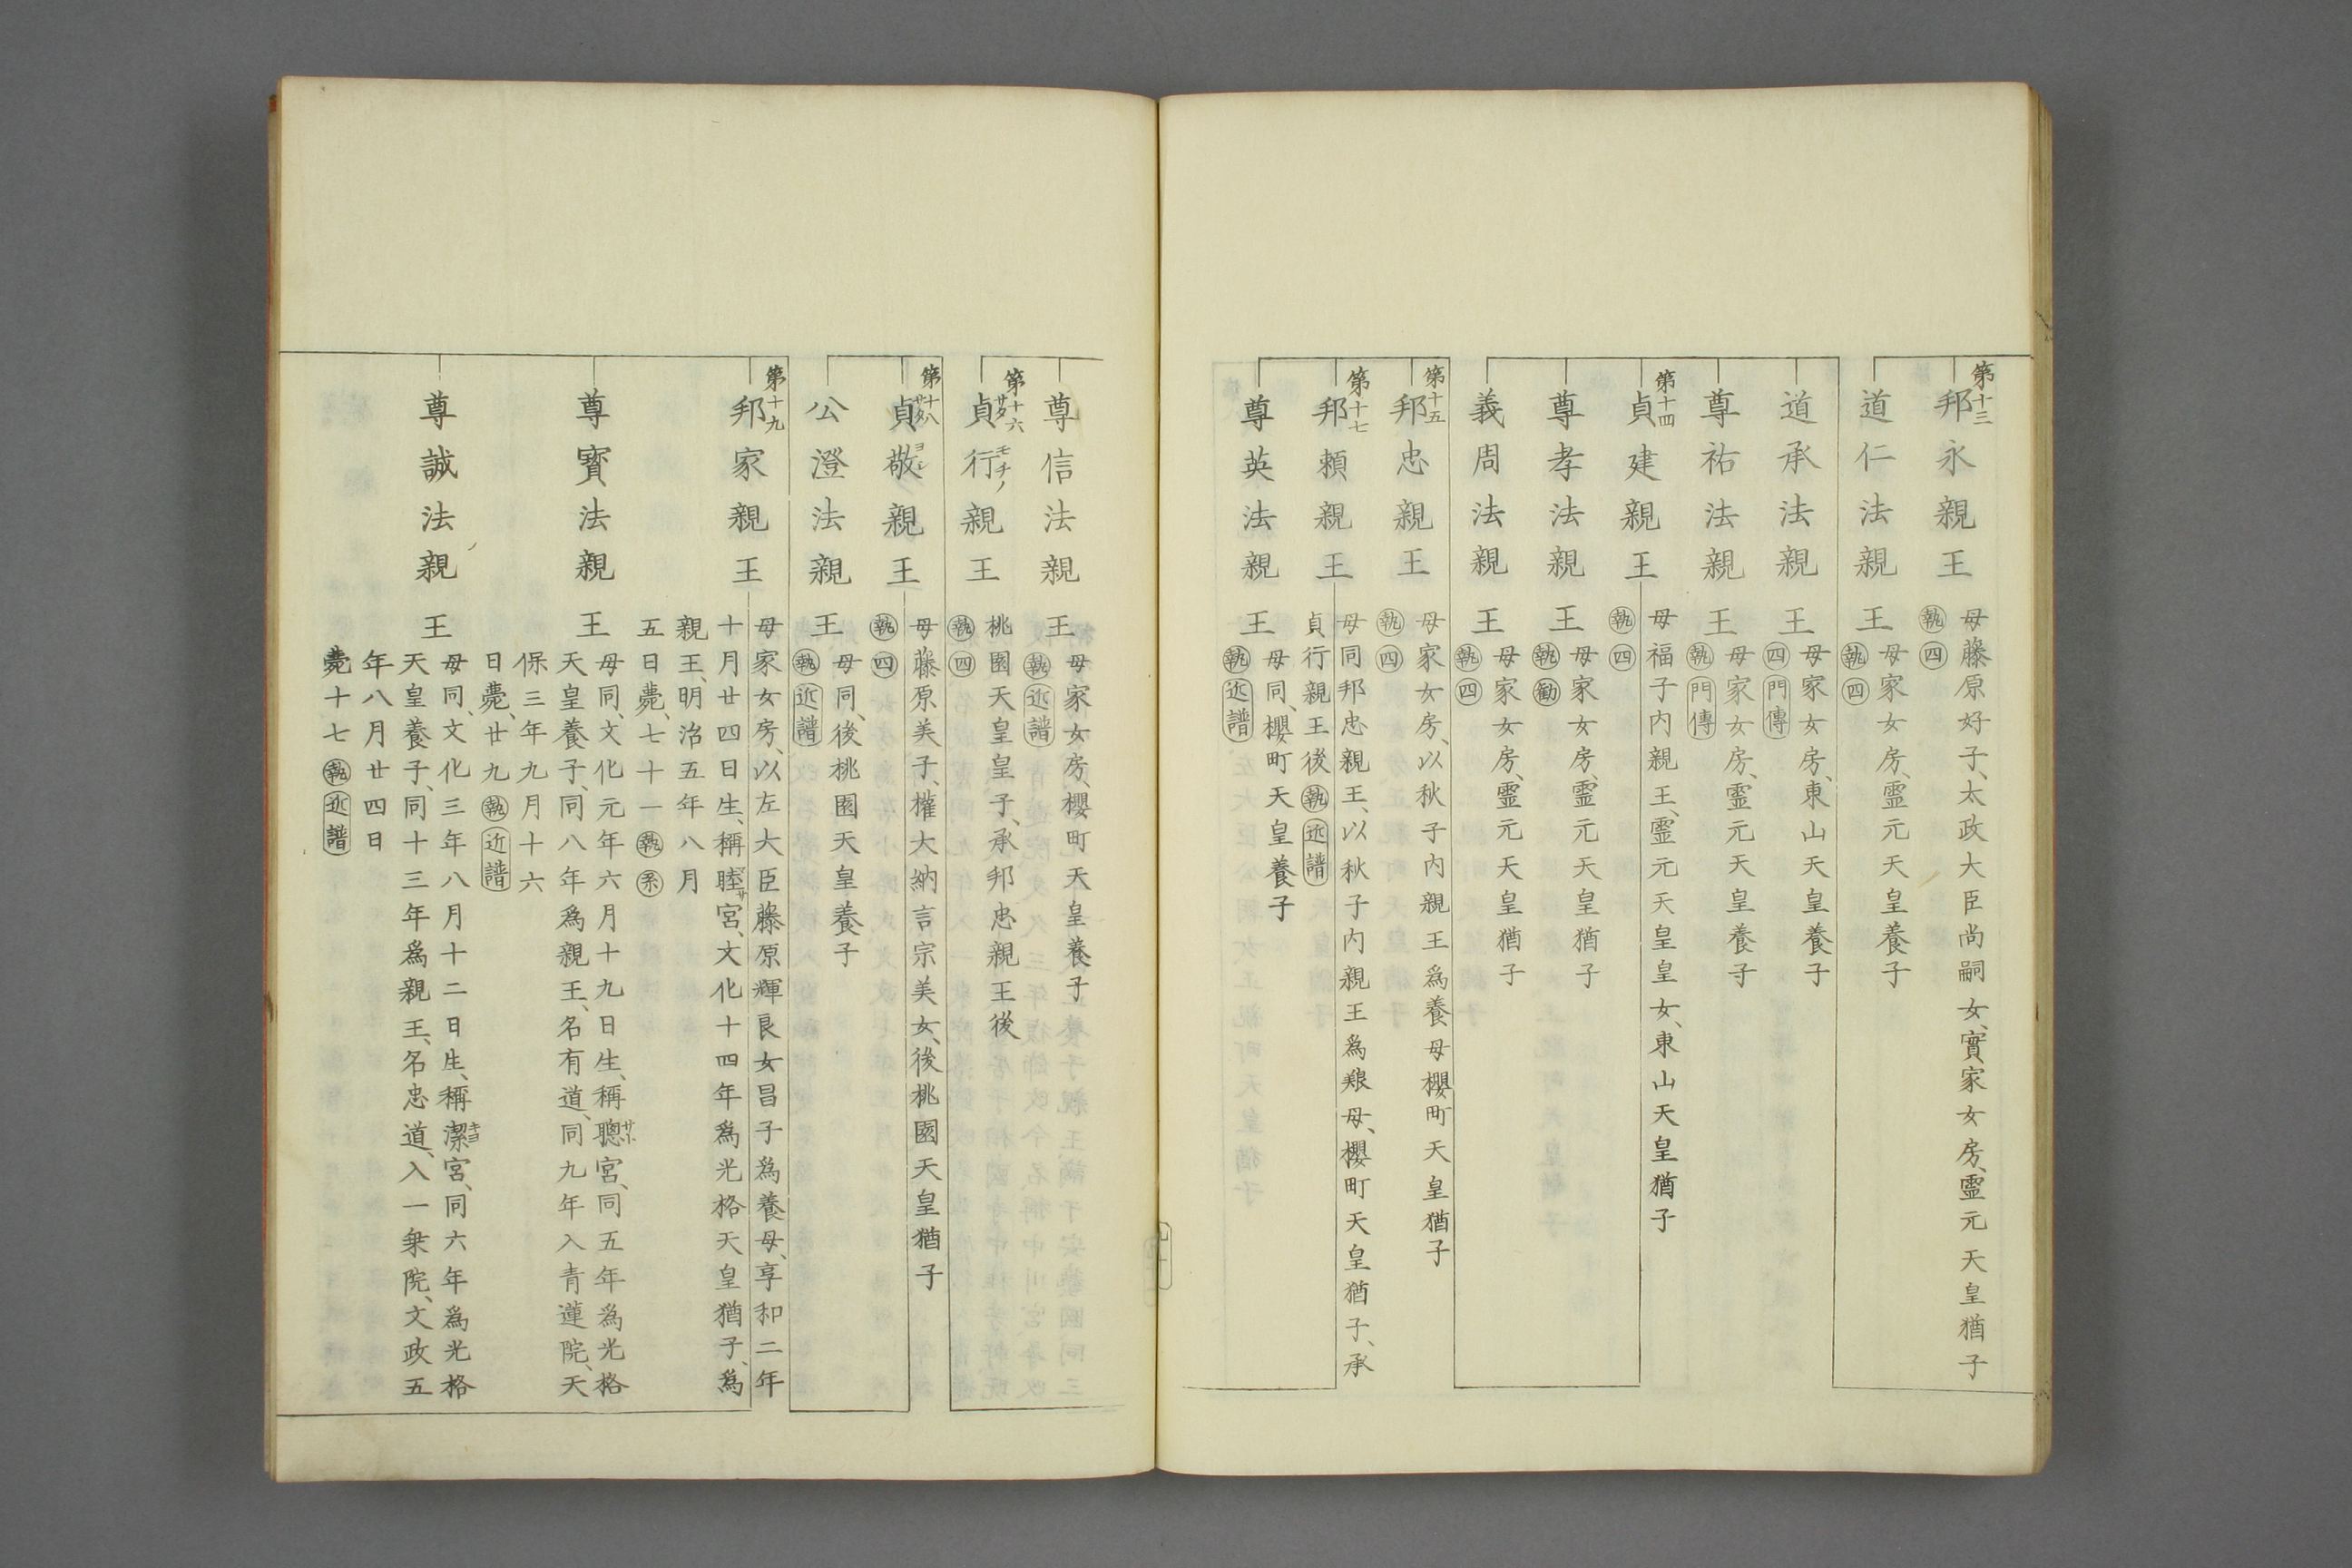 第十三
邦永親王
母藤原好子、太政大臣尚嗣女、實家女房、霊元天皇猶子
執四
道仁法親王
母家女房、霊元天皇養子
執四
道承法親王
母家女房、東山天皇養子
四門傳
尊祐法親王
母家女房、霊元天皇養子
執門傳
第十四
貞建親王
母福子内親王、霊元天皇皇女、東山天皇猶子
執四
尊孝法親王
母家女房、霊元天皇猶子
執勸
義周法親王
母家女房、霊元天皇猶子
執四
第十五
邦忠親王
母家女房、以秋子内親王爲養母櫻町天皇猶子
執四
第十七
邦頼親王
母同邦忠親王、以秋子内親王爲嫡母、櫻町天皇猶子、承
貞行親王後執近譜
尊英法親王
母同、櫻町天皇養子
執近譜
尊信法親王
母家女房、櫻町天皇養子
執近譜
第十六
貞行親王
サタ モチノ
桃園天皇皇子、承邦忠親王後
執四
第十八
貞敬親王
サタ ヨシ
母藤原美子、權大納言宗美女、後桃園天皇猶子
執四
公澄法親王
母同、後桃園天皇養子
執近譜
第十九
邦家親王
母家女房、以左大臣藤原輝良女昌子爲養母、享和二年
十月廿四日生、稱睦宮、文化十四年爲光格天皇猶子、爲
親王、明治五年八月
五日薨、七十一執系
尊寳法親王
母同、文化元年六月十九日生、稱聰宮、同五年爲光格
天皇養子、同八年爲親王、名有道、同九年入青蓮院、天
保三年九月十六
日薨、廿九執近譜
尊誠法親王
母同、文化三年八月十二日生、稱潔宮、同六年爲光格
キヨ
天皇養子、同十三年爲親王、名忠道、入一乗院、文政五
年八月廿四日
薨十七執近譜